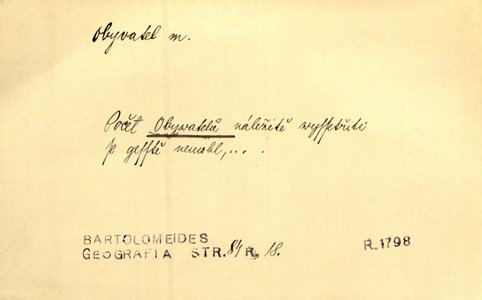 Obyvatel m.
Počet Obywatelů náležitě wyssetřiti
se gesstě nemohl,... .
BARTOLOMEIDES
GEOGRAFIA STR. 84 R. 18.
R. 1798